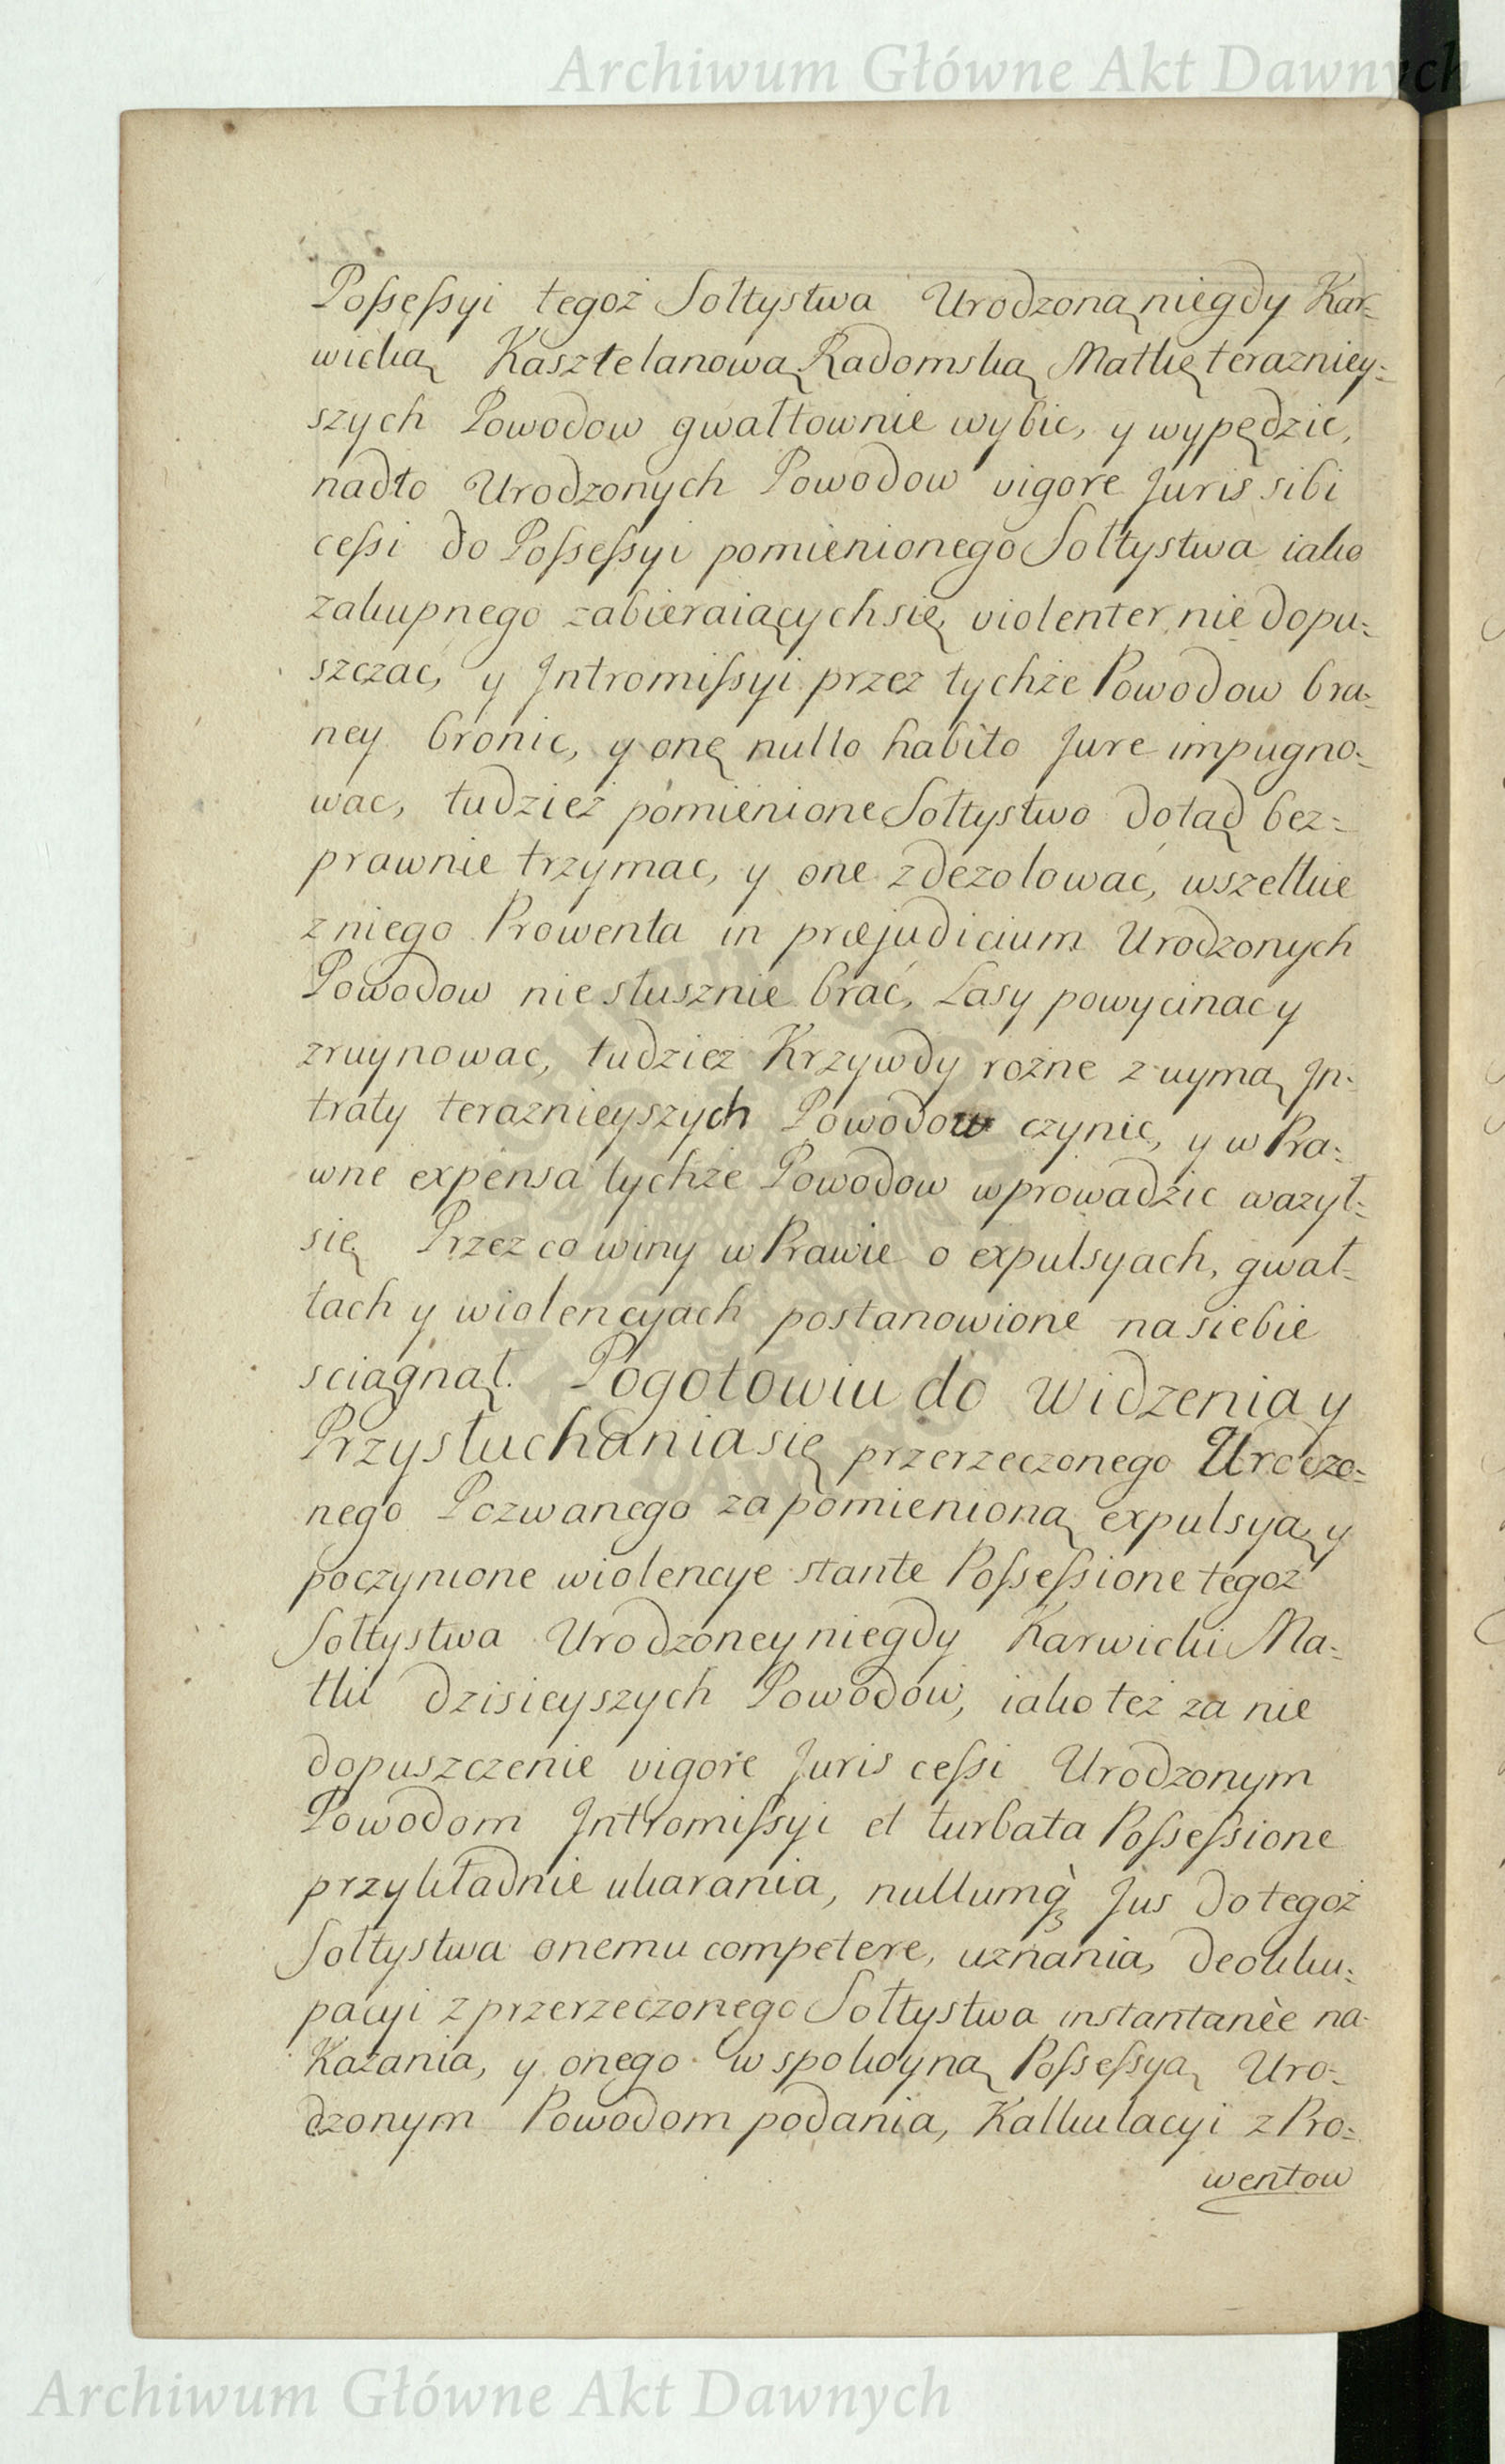 Archiwum Główne Akt Dawnych
Possessyi tegoż Sołtystwa Urodzoną niegdy Kar=
wicką Kasztelanową Radomską Matkę terazniey=
szych Powodow gwałtownie wybic, y wypędzic,
nadto Urodzonych Powodow vigore Juris sibi
cessi do Possessyi pomienionego Sołtystwa iako
zakupnego zabieraiących się, violenter nie dopu=
szczać, y Intromissyi przez tychże Powodow bra=
ney bronic, y onę nullo habito Jure impugno=
wac, tudzież pomienione Sołtystwo dotąd bez=
prawnie trzymac, y one zdezolować, wszelkie
z niego Prowenta in præjudicium Urodzonych
Powodow niesłusznie brać, Lasy powycinac y
zruynowac, tudziez Krzywdy rożne z uymą In=
traty teraznieyszych Powodow czynic, y w Pra=
wne expensa tychże Powodow wprowadzic wazył=
się Przez co winy w Prawie o expulsyach, gwał=
tach y wiolencyach postanowione na siebie
sciągnął. Pogotowiu do Widzenia y
Przysłuchania się przerzeczonego Urodzo=
nego Pozwanego za pomienioną expulsyą, y
poczynione wiolencye stante Possessione tegoż
Sołtystwa Urodzoney niegdy Karwicki Ma=
tki dzisieyszych Powodow, iako też za nie
dopuszczenie vigore Juris cessi Urodzonym
Powodom Intromissyi et turbata Possessione
przykładnie ukarania, nullumq̀ȝ Jus do tegoż
Sołtystwa onemu competere, uznania, deokku=
pacyi z przerzeczonego Sołtystwa instantanèe na=
kazania, y onego w spokoyną Possessyą Uro=
dzonym Powodom podania, Kalkulacyi z Pro=
wentow
Archiwum Główne Akt Dawnych